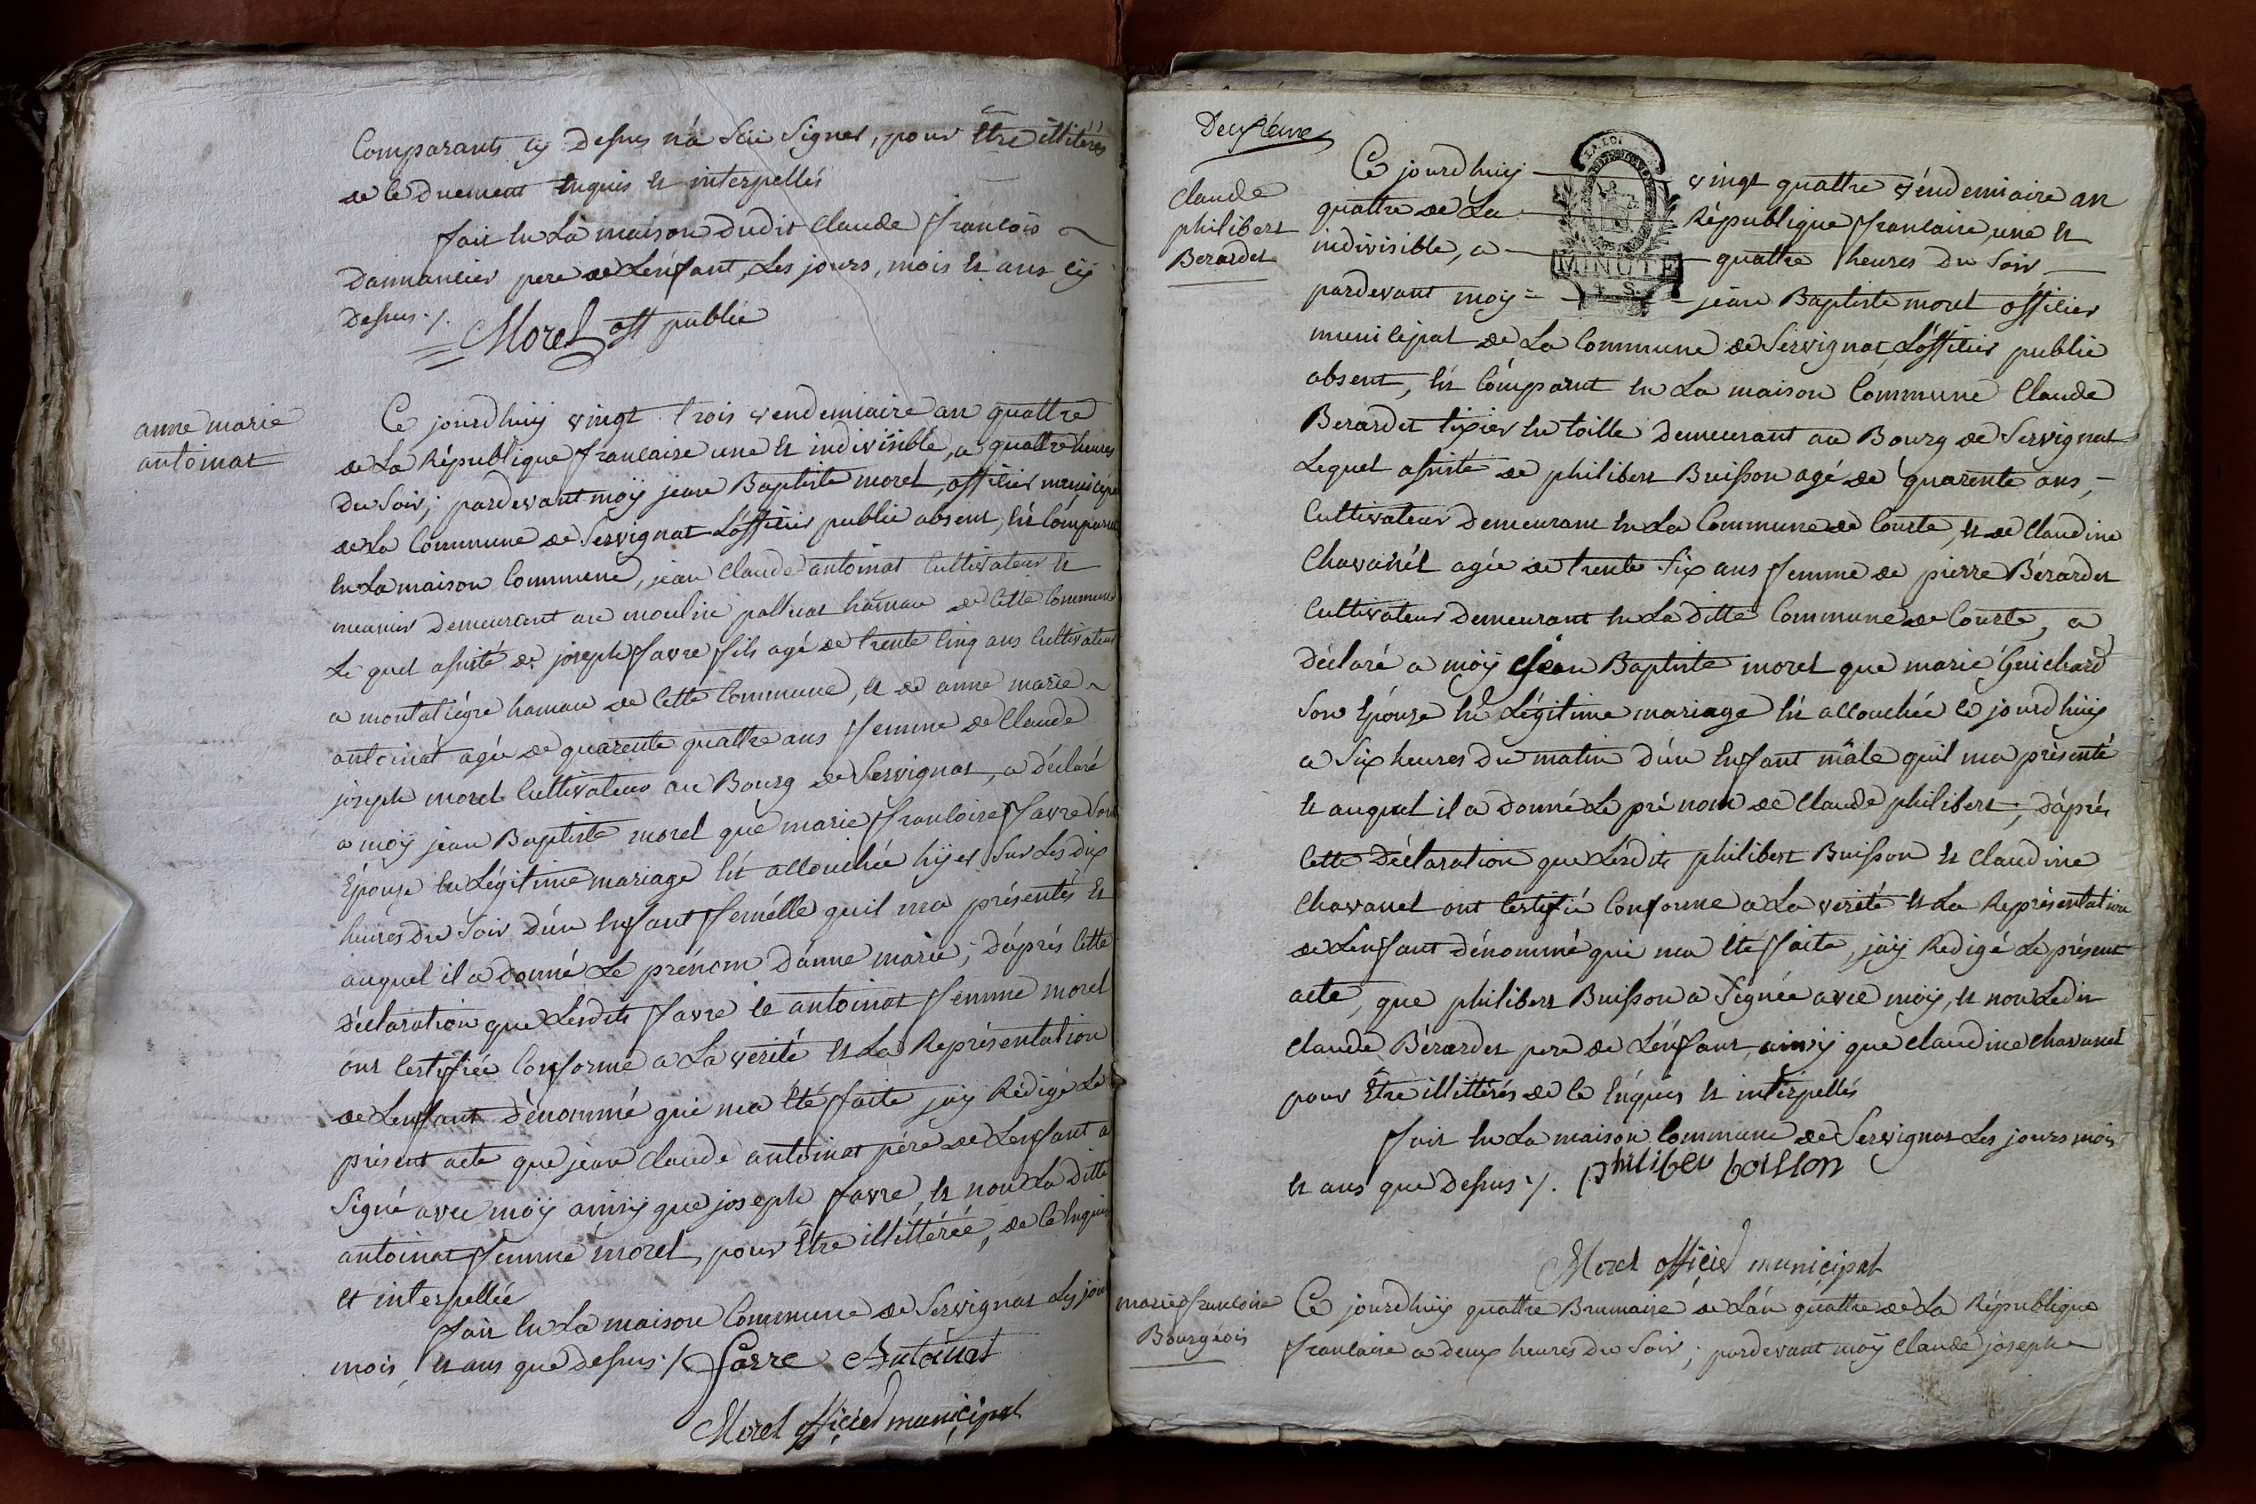 Comparants cy dessus n'a sçu signer, pour être illitérés
de ce duement enquis et interpellés
fait en la maison dudit Claude françois
Dannancier pere de l'enfant, les jours, mois et ans cy
dessus ./.
Morel off public
anne marie
antoinat
Ce jourdhuy vingt trois vendemiaire an quattre
de la République francaise une et indivisible, a quattre heures
du soir, pardevant moÿ jean Baptiste morel, officier municipal
de la Commune de Servignat l'officier public absent, est comparut
en la maison Commune, jean Claude antoinat Cultivateur et
meunier demeurant au moulin hameau de cette Commune
le quel assisté de joseph favre fils agé de trente cinq ans Cultivateur
a hameau de cette Commune, et de anne marie
antoinat agée de quarente quattre ans femme de Claude
joseph morel Cultivateur au Bourg de Servignat, a déclaré
a moÿ jean Baptiste morel que marie francoise favre son
Epouse en légitime mariage est accouchée hÿer sur les dix
heures du soir d'un enfant femélle quil m'a présentés et
auquel il a donné le prénom d'anne marie; d'après cette
déclaration que lesdits favre et antoinat femme morel
ont certifiée Conforme a la verité et la Représentation
de l'enfant dénommé qui m'a été faite jaÿ Rédigé le
présent acte que jean Claude antoinat pére de l'enfant a
signé avec moÿ ainsy que joseph favre, et non la ditte
antoinat femme morel, pour être illittérée, de ce enquis
et interpellée
fait en la maison Commune de Servignat les jour
mois, et ans que dessus ./. favre Antoinat
Morel officier municipal
Deuxieme
Claude
philibert
Berardet
Ce jourdhuy vingt quattre véndemiaire an
LA LOI
quattre de La République francaise, une et
indivisible, a quattre heures du Soir
MINUTE
pardevant moy jean Baptiste morel officier
municipal de La Commune de Servignat L'officier public
absent, est Cómparut en La maison Commune Claude
Berardet tixier en toille demeurant au Bourg de Servignat
Lequel assisté de philibert Buisson agé de quarente ans,
Cultivateur demeurant en La Commune de Courte, et de Claudine
Chavanel agée de trente Six ans femme de pierre Bérardet
Cultivateur demeurant en La ditte Commune de Courte, a
déclaré a moÿ jean Baptiste morel que marie Guichard
Son Epouse en Légitime mariage est accouchée ce jourdhuy
a Six heures du matin d'un Enfant mâle quil m'a présenté
et auquel il a donné Le pré nom de Claude philibert; d'après
Cette Déclaration que Lesdits philibert Buisson et Claudine
Chavanel ont certifié Conforme a La verité et La Représentation
de L'enfant dénommé qui m'a été faite, jaÿ Redigé Le présent
acte, que philibert Buisson a signée avec moÿ, et non Ledit
Claude Bérardet pere de L'énfant, ainsy que Claudine Chavanel
pour être illittérés de ce Enquis et intérpellés
fait en La maison Commune de Servignat Les jours mois
et ans que dessus ./. philiber boisson
Morel officier municipal
marie francoise
Bourgeois
Ce jourdhuy quattre Brumaire de L'an quattre de La République
francaise a deux heures du Soir; pardevant moÿ Claude joseph